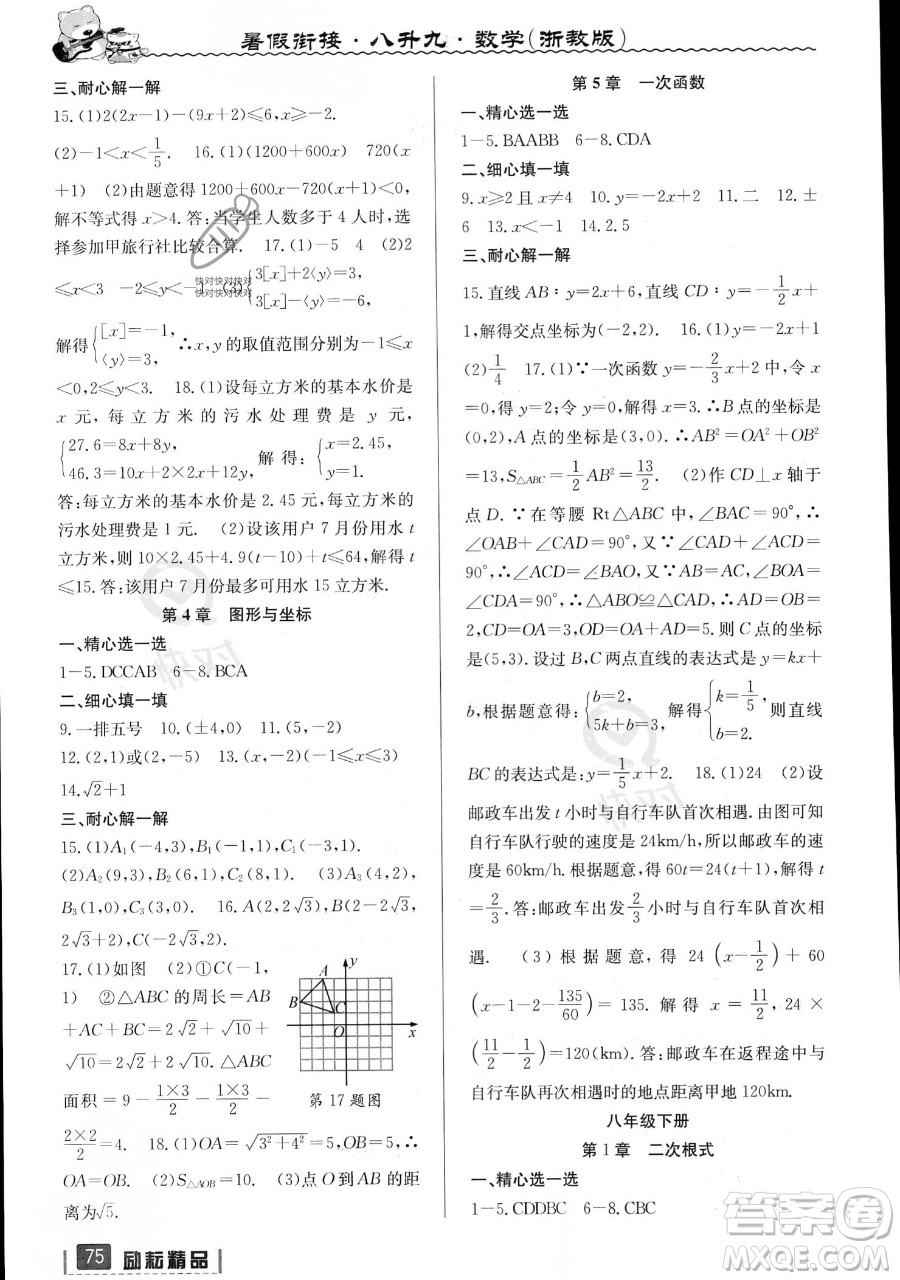 暑假衔接·八升九·数学(浙教版)
三、耐心解一解
15.(1)2(2x-1)-(9x+2)≤6,x≥-2.
(2)-1<x<1/5. 16.(1)(1200+600x) 720(x
+1) (2)由题意得1200+600x-720(x+1)<0,
解不等式得x>4.答:当学生人数多于4人时,选
择参加甲旅行社比较合算. 17.(1)-5 4 (2)2
≤x<3 -2≤y<-1 (3){3[x]+2⟨y⟩=3, 3[x]-⟨y⟩=-6,
解得{[x]=-1, ⟨y⟩=3, ∴x,y的取值范围分别为-1≤x
<0,2≤y<3. 18.(1)设每立方米的基本水价是
x元,每立方米的污水处理费是y元.
{27.6=8x+8y, 46.3=10x+2×2x+12y, 解得:{x=2.45, y=1.
答:每立方米的基本水价是2.45元,每立方米的
污水处理费是1元. (2)设该用户7月份用水t
立方米,则10×2.45+4.9(t-10)+t≤64,解得t
≤15.答:该用户7月份最多可用水15立方米.
第4章 图形与坐标
一、精心选一选
1-5.DCCAB 6-8.BCA
二、细心填一填
9.一排五号 10.(±4,0) 11.(5,-2)
12.(1,2)或(2,-5) 13.(2,x)(-1≤x≤3)
14.√2+1
三、耐心解一解
15.(1)A₁(-4,3),B₁(-1,0),C₁(-2,5)
(2)A₂(9,3),B₂(6,0),C₂(7,5) (3)A₃(4,3),
B₃(1,0),C₃(2,5) 16.A(2,2√3),B(0,
2√3+2),C(-2√3,2),O(0,0)
17.(1)如图 (2)①C(-1,
1) ②△ABC的周长=AB
+AC+BC=2√2+√10+
√10=2√2+2√10.△ABC
面积=9-1×3/2-1×3/2-
2×2/2=4. 18.(1)OA=√(3²+4²)=5=OB,∴
OA=OB. (2)S△AOB=10. (3)点O到AB的距
离为√5.
A
B
C
O
x
y
第17题图
75 励耘精品
第5章 一次函数
一、精心选一选
1-5.BAABB 6-8.CDA
二、细心填一填
9.x≥2且x≠4 10.y=-2x+2 11.二 12.±
6 13.x<-1 14.2.5
三、耐心解一解
15.直线AB:y=2x+6,直线CD:y=-1/2x+
1,解得交点坐标为(-2,2). 16.(1)y=-2x+1
(2)1/4 17.(1)∵一次函数y=-2/3x+2中,令x
=0,得y=2;令y=0,解得x=3.∴B点的坐标是
(0,2),A点的坐标是(3,0).∴AB²=OA²+OB²
=13,S△ABC=1/2AB²=13/2. (2)作CD⊥x轴于
点D.∵在等腰Rt△ABC中,∠BAC=90°,∴
∠OAB+∠CAD=90°,∵∠ACD+∠CAD=
90°,∴∠ACD=∠BAO.又∵AB=AC,∠BOA=
∠CDA=90°,∴△ABO≌△CAD.∴AD=OB=
2,CD=OA=3,OD=OA+AD=5.则C的坐标
是(5,3).设过B,C两点直线的表达式是y=kx+
b,根据题意得:{b=2, 5k+b=3, 解得{k=1/5, b=2, 则直线
BC的表达式是:y=1/5x+2. 18.(1)24 (2)设
邮政车出发t小时与自行车队首次相遇.由图可知
自行车队行驶的速度是24km/h,所以邮政车的速
度是60km/h.根据题意,得60t=24(t+1),解得t=
2/3.答:邮政车出发2/3小时与自行车队首次相
遇. (3)根据题意,得24(x-1/2)+60
(x-1/2-135/60)=135.解得x=11/2,24×
(11/2-1/2)=120(km).答:邮政车在返程途中与
自行车队再次相遇时的地点距离甲地120km.
八年级下册
第1章 二次根式
一、精心选一选
1-5.CDDBC 6-8.CBC
快对
快对
答案圈
MXQE.COM